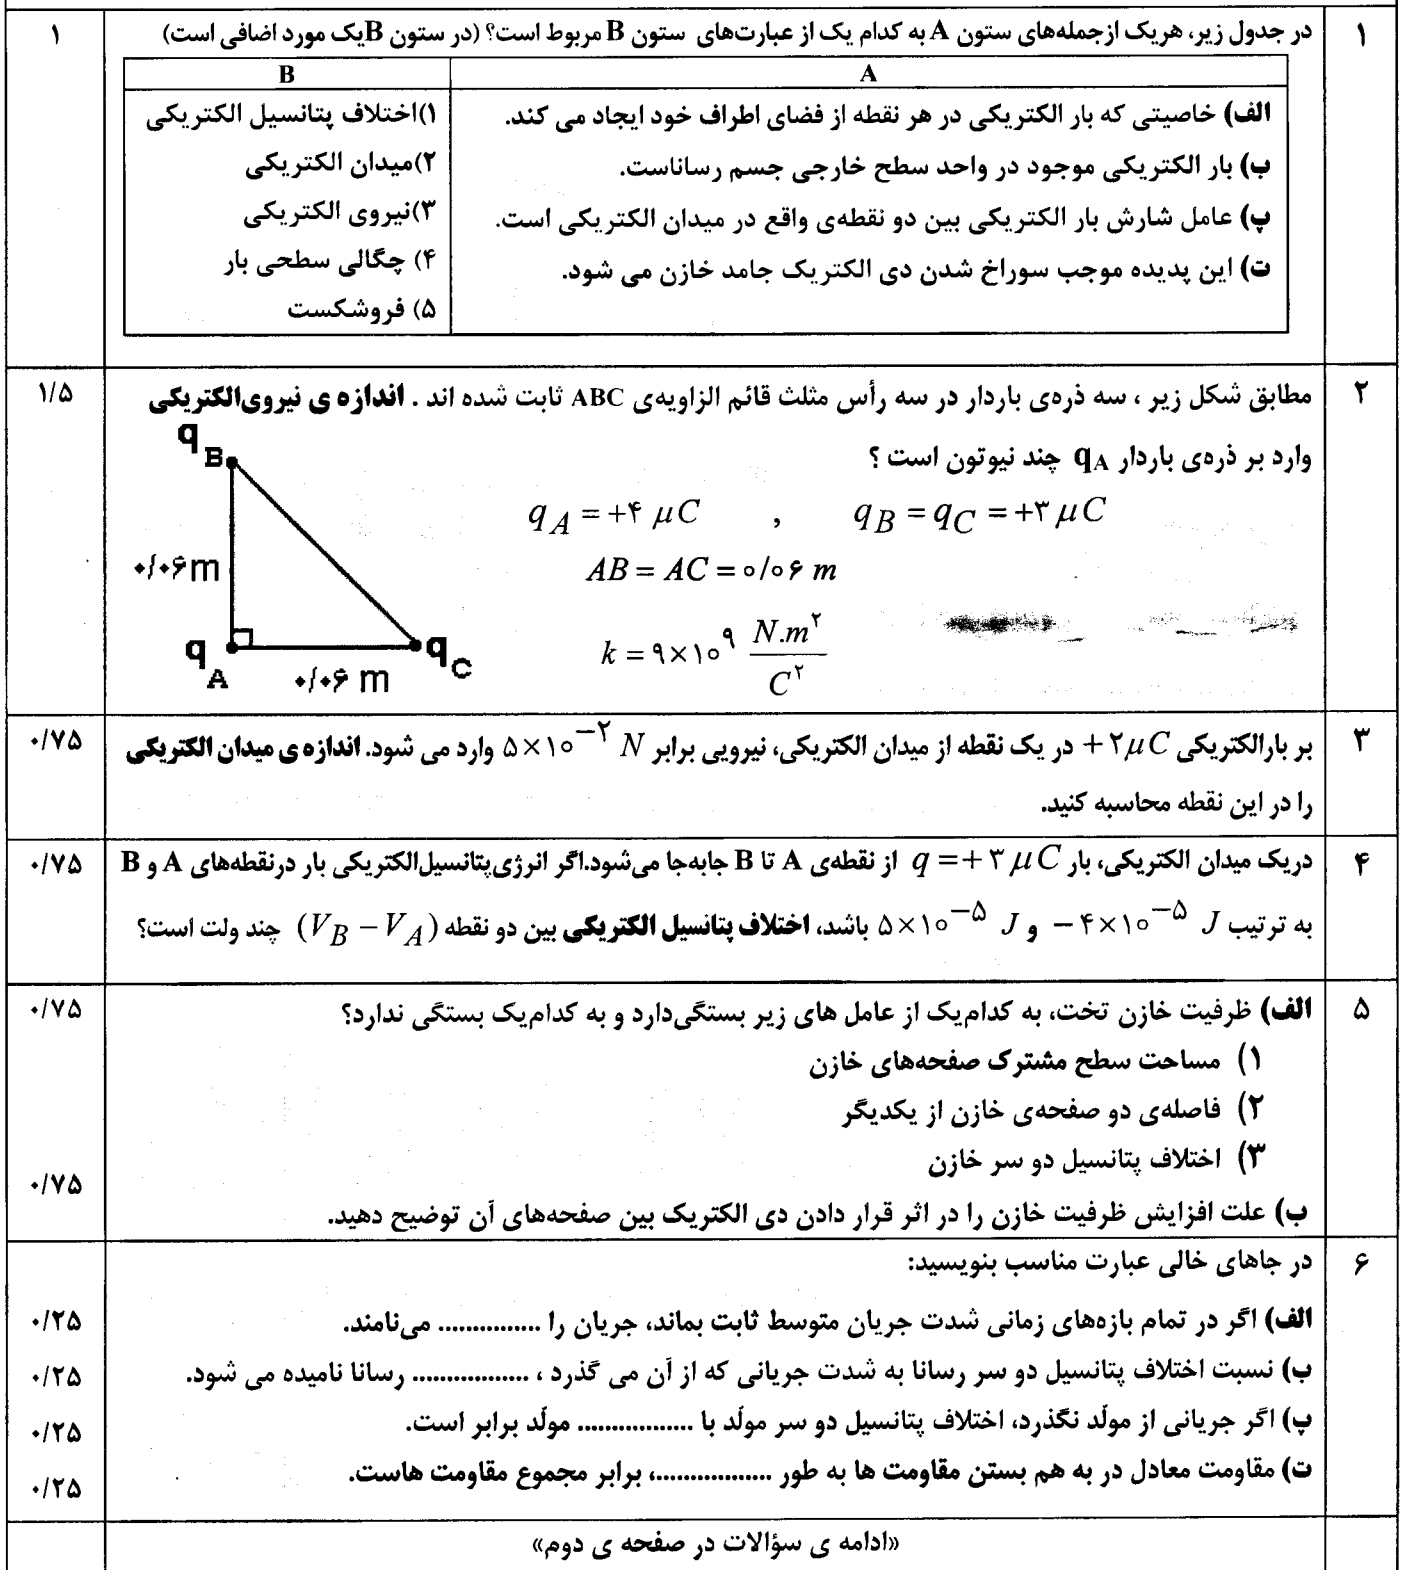 ۱
در جدول زیر، هریک ازجمله‌های ستون A به کدام یک از عبارت‌های ستون B مربوط است؟ (در ستون B یک مورد اضافی است)
۱
A
B
الف) خاصیتی که بار الکتریکی در هر نقطه از فضای اطراف خود ایجاد می کند.
ب) بار الکتریکی موجود در واحد سطح خارجی جسم رساناست.
پ) عامل شارش بار الکتریکی بین دو نقطه‌ی واقع در میدان الکتریکی است.
ت) این پدیده موجب سوراخ شدن دی الکتریک جامد خازن می شود.
۱)اختلاف پتانسیل الکتریکی
۲)میدان الکتریکی
۳)نیروی الکتریکی
۴) چگالی سطحی بار
۵) فروشکست
۲
مطابق شکل زیر ، سه ذره‌ی باردار در سه رأس مثلث قائم الزاویه‌ی ABC ثابت شده اند . اندازه ی نیروی‌الکتریکی
۱/۵
وارد بر ذره‌ی باردار qA چند نیوتون است ؟
qA = +۴ μC , qB = qC = +۳ μC
AB = AC = ۰/۰۶ m
k = ۹×۱۰^۹ N.m^۲ / C^۲
qB
۰/۰۶ m
qA
qC
۰/۰۶ m
۳
بر بارالکتریکی +۲μC در یک نقطه از میدان الکتریکی، نیرویی برابر ۵×۱۰^−۲ N وارد می شود. اندازه ی میدان الکتریکی
۰/۷۵
را در این نقطه محاسبه کنید.
۴
دریک میدان الکتریکی، بار q = +۳ μC از نقطه‌ی A تا B جابه‌جا می‌شود.اگر انرژی‌پتانسیل‌الکتریکی بار درنقطه‌های A و B
۰/۷۵
به ترتیب −۴×۱۰^−۵ J و ۵×۱۰^−۵ J باشد، اختلاف پتانسیل الکتریکی بین دو نقطه (VB − VA) چند ولت است؟
۵
الف) ظرفیت خازن تخت، به کدام‌یک از عامل های زیر بستگی‌دارد و به کدام‌یک بستگی ندارد؟
۰/۷۵
۱) مساحت سطح مشترک صفحه‌های خازن
۲) فاصله‌ی دو صفحه‌ی خازن از یکدیگر
۳) اختلاف پتانسیل دو سر خازن
۰/۷۵
ب) علت افزایش ظرفیت خازن را در اثر قرار دادن دی الکتریک بین صفحه‌های آن توضیح دهید.
۶
در جاهای خالی عبارت مناسب بنویسید:
الف) اگر در تمام بازه‌های زمانی شدت جریان متوسط ثابت بماند، جریان را ............... می‌نامند.
۰/۲۵
ب) نسبت اختلاف پتانسیل دو سر رسانا به شدت جریانی که از آن می گذرد ، ................. رسانا نامیده می شود.
۰/۲۵
پ) اگر جریانی از مولّد نگذرد، اختلاف پتانسیل دو سر مولّد با ................. مولّد برابر است.
۰/۲۵
ت) مقاومت معادل در به هم بستن مقاومت ها به طور .................، برابر مجموع مقاومت هاست.
۰/۲۵
«ادامه ی سؤالات در صفحه ی دوم»